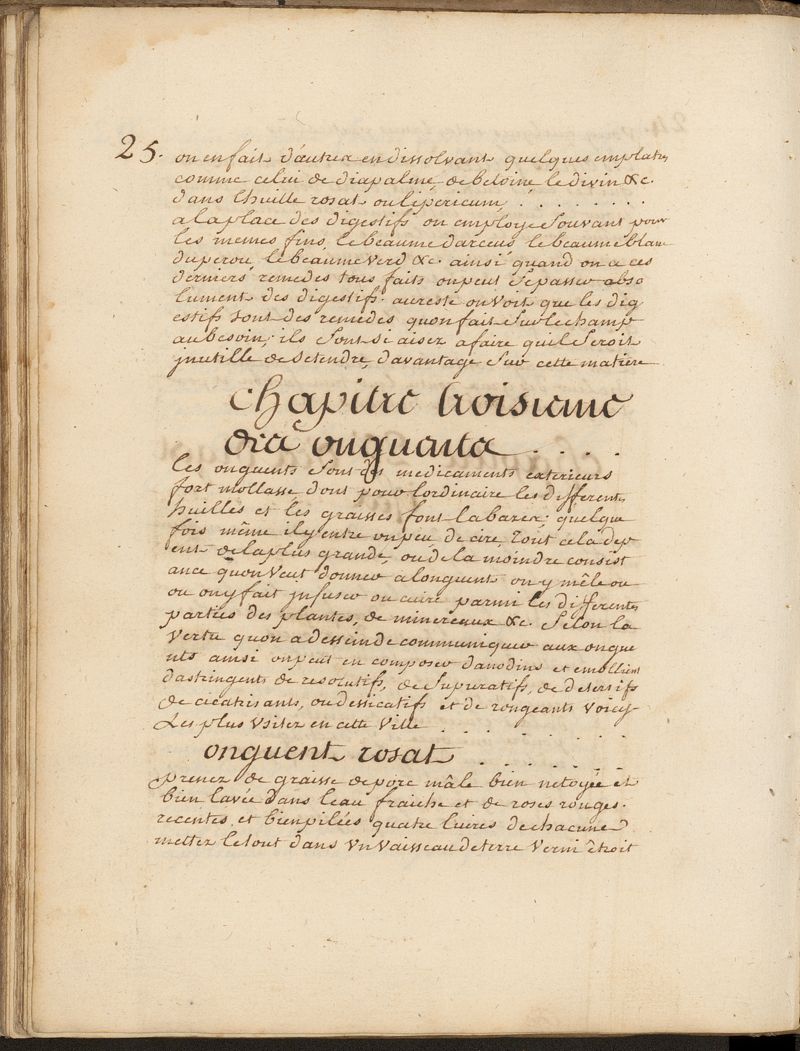 25. on en fait d'autres en dissolvant quelques emplatres
comme celui de diapalme, de betoine le divin &c.
dans lhuille rosat ou l'épericum . . . . . . . .
a la place des digestifs on employe souvant pour
les memes fins, le beaume darceus, le beaume blanc
du perou, le beaume verd &c. ainsi quand on a ces
derniers remedes tous faits on peut se passer abso
lument des digestifs. au reste on voit que les dig
estifs sont des remedes quon fait sur le champ
au besoin, ils sont si aisez a faire quil seroit
jnutille de setendre davantage sur cette matiere
chapitre troisieme
des onguents . . . .
les onguents sont des medicaments exterieurs
fort mollasse dont pour lordinaire les differents
huilles et les graisses font la bases; quelque
fois même il y entre un peu de cire, tout cela dep
ent de la plus grande, ou de la moindre consist
ance quon veut donner a longuent on y mêle ou
ou on y fait jnfuser ou cuire parmi les differentes
parties des plantes, de minereaux &c. selon la
vertu quon a dessein de communiquer aux ongue
nts ainsi on peut en composer danodins et emollients
dastringents de resolutifs, de supuratifs, de detersifs
de cicatrisants, ou dessicatifs et de rongeants voicy
les plus usitez en cette ville . . . . . . . .
onguent rosat . . . . . .
prenez de graisse de porc mâle bien netoyée et
bien lavée dans leau fraiche et de roses rouges
recentes et bien pilées quatre livres de chacune
metter le tout dans un vaisseau de terre verni étroit